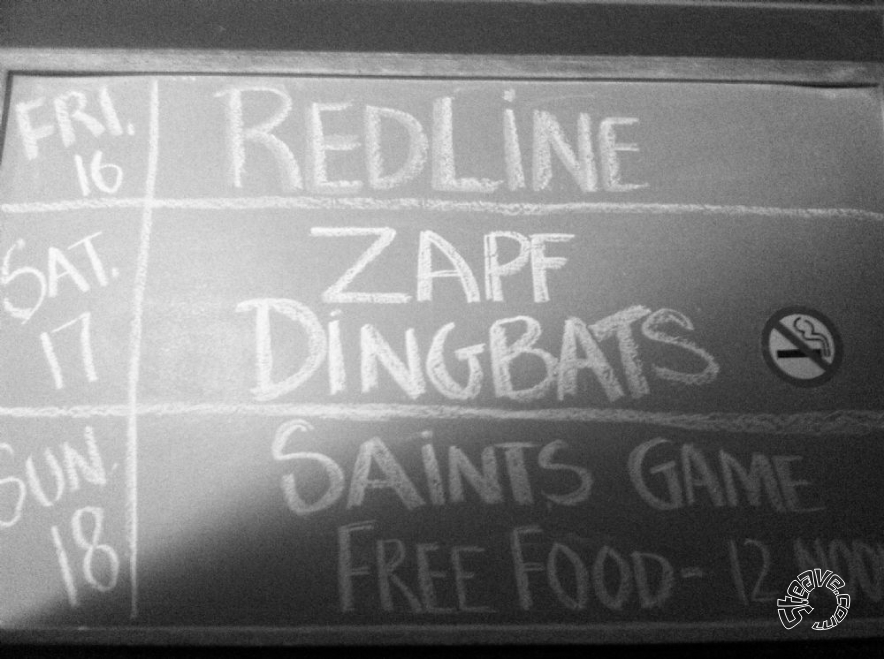 FRI.
16
REDLiNE
SAT.
17
ZAPF
DiNGBATS
SUN.
18
SAiNTS GAME
FREE FOOD- 12 NOON
Steave.com